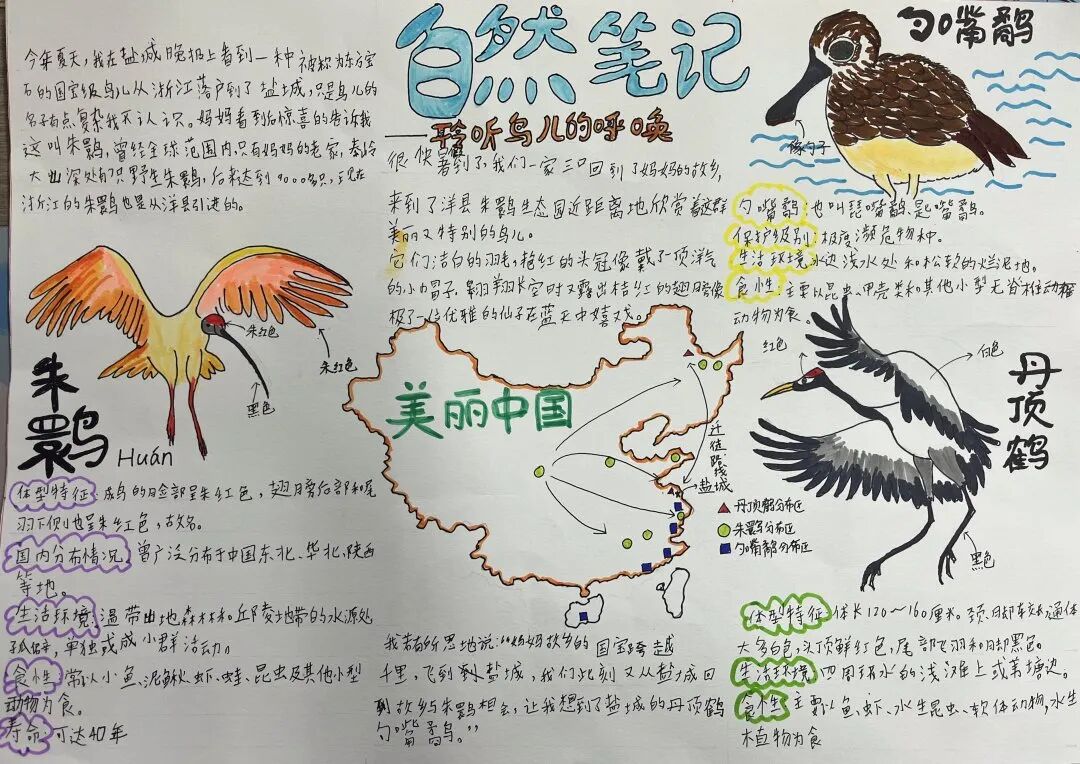 自然笔记
——聆听鸟儿的呼唤
今年夏天，我在盐城晚报上看到一种被称为东方宝
石的国宝级鸟儿从浙江落户到了盐城，只是鸟儿的
名字有点复杂我不认识。妈妈看到后惊喜的告诉我
这叫朱鹮，曾经全球范围内，只有妈妈的老家，秦岭
大山深处有7只野生朱鹮，后来达到9000多只，现在
浙江的朱鹮也是从洋县引进的。
很快暑到了，我们一家三口回到了妈妈的故乡，
来到了洋县朱鹮生态园近距离地欣赏着这群
美丽又特别的鸟儿。
它们洁白的羽毛，艳红的头冠像戴了一顶洋气
的小帽子，翱翔长空时又露出桔红的翅膀像
极了一位优雅的仙子在蓝天中嬉戏。
朱鹮
Huán
朱红色
朱红色
黑色
体型特征：成鸟的脸部呈朱红色，翅膀后部和尾
羽下侧也呈朱红色，故名。
国内分布情况：曾广泛分布于中国东北、华北、陕西
等地。
生活环境：温带山地森林和丘陵地带的水源处
孤僻，单独或成小群活动。
食性：常以小鱼、泥鳅、虾、蛙、昆虫及其他小型
动物为食。
寿命：可达40年
美丽中国
迁徙路线
盐城
丹顶鹤分布区
朱鹮分布区
勺嘴鹬分布区
我若有所思地说：“妈妈故乡的国宝跨越
千里，飞到盐城，我们此刻又从盐城回
到故乡与朱鹮相会，让我想到了盐城的丹顶鹤
勺嘴鹬。”
勺嘴鹬
像勺子
勺嘴鹬：也叫琵嘴鹬、匙嘴鹬。
保护级别：极度濒危物种。
生活环境：水边浅水处和松软的烂泥地。
食性：主要以昆虫、甲壳类和其他小型无脊椎动
动物为食。
丹顶鹤
红色
白色
黑色
体型特征：体长120～160厘米。颈、脚较长，通体
大多白色，头顶鲜红色，尾部飞羽和脚黑色。
生活环境：四周环水的浅滩上或苇塘边。
食性：主要以鱼、虾、水生昆虫、软体动物，水生
植物为食